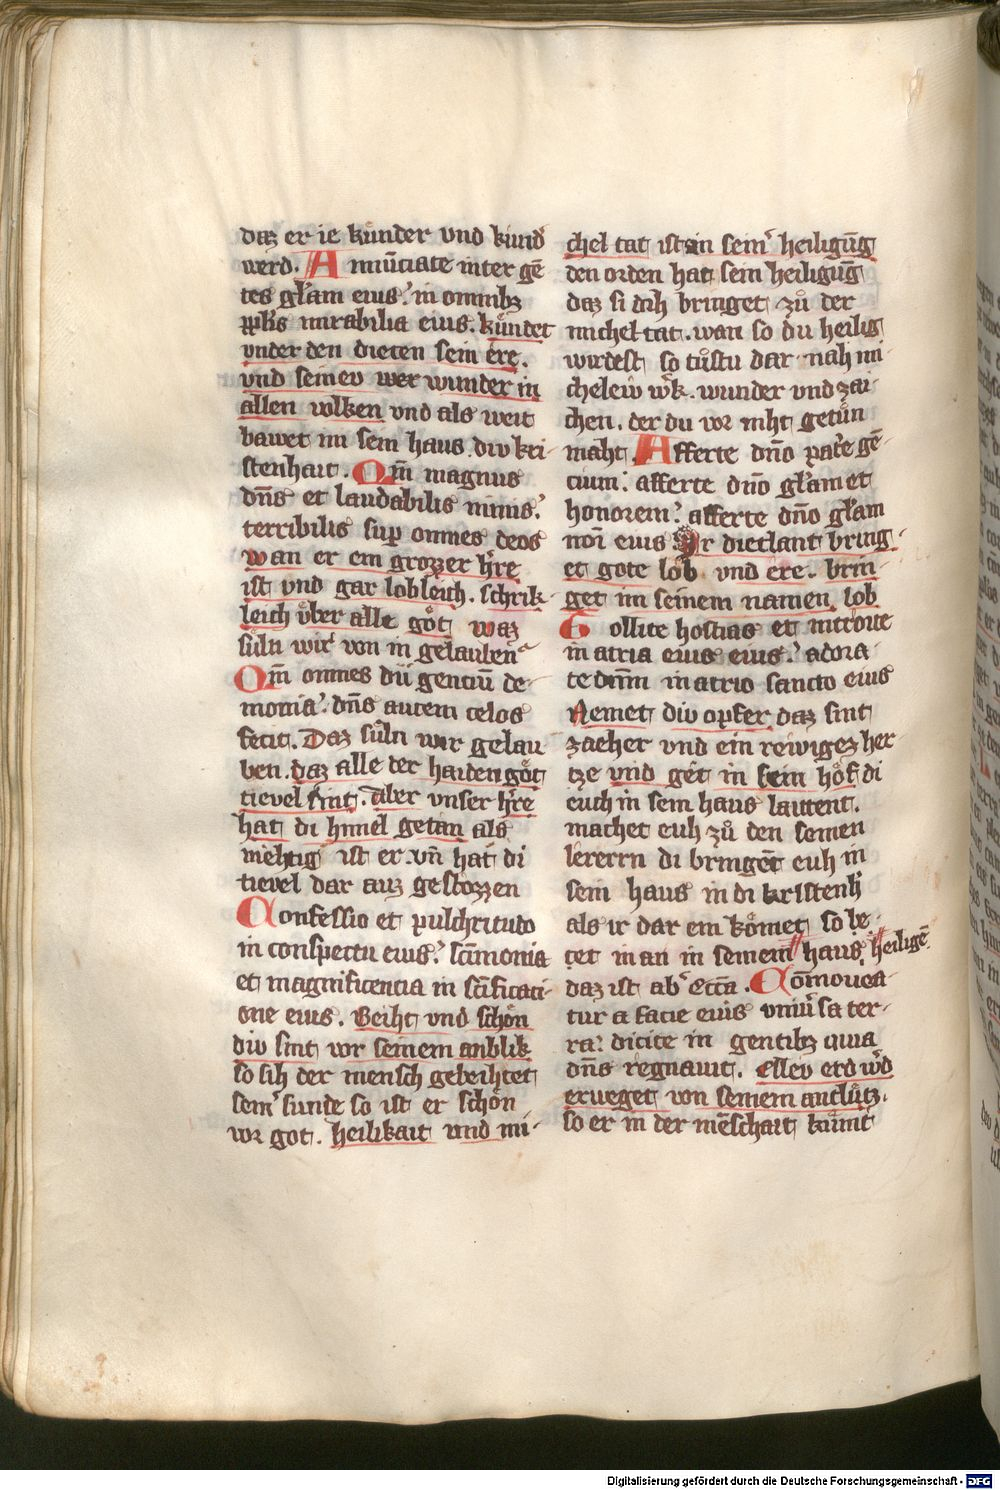 daz er ie kúnder vnd kund
werd. Annūciate inter gē
tes gl'am eius.' in omnibz
ppl's mirabilia eius. kúndet
vnder den dieten sein ere.
vnd seineu wer wunder in
allen volken vnd als weit
bawet im sein haus diu kri-
stenhait. Qm̄ magnus
dn̄s et laudabilis nimis.'
terribilis sup omnes deos
wan er ein grozzer h're
ist vnd gar lobleich. schrik-
leich über alle göt waz
süln wir von in gelauben
Qm̄ omnes dii genciū de-
monia.' dn̄s autem celos
fecit. Daz süln wir gelau
ben. daz alle der haiden göt
tievel sint. Aber vnser h're
hat di himel getan als
mehtig ist er. vn̄ hat di
tievel dar auz gestozzen
Confessio et pulchritudo
in conspectu eius.' sc̄imonia
et magnificencia in sc̄ificaci-
one eius. Beiht vnd schön
div sint vor seinem anblik
so sih der mensch gebeihtet
sein' sunde so ist er schön
vor got. heilikait vnd mi-
chel tat ist in sein' heiligūg
den orden hat sein heiligūg
daz si dih bringet zů der
michel tat. wan so du heilig
wirdest so tůstu dar nah mi
cheleiv w'k. wunder vnd zai-
chen. der du vor niht getůn
maht. Afferte dn̄o pat'e gē-
cium. afferte dn̄o gl'am et
honorem.' afferte dn̄o gl'am
nōi eius. Ir dietlant bring-
et gote lob vnd ere. brin-
get im seinem namen lob
Tollite hostias et introite
in atria eius eius.' adora-
te dn̄m in atrio sancto eius
Nemet div opfer daz sint
zaeher vnd ein rewigez her
tze vnd gēt in sein höf di
euch in sein haus lautent.
machet euh zů den seinen
lererrn di bringēt euh in
sein haus in di kristenh'
als ir dar ein kömet so be-
tet in an in seinem haus, heiligē
daz ist ab' Ecc̄a. Com̄ouea-
tur a facie eius vniu'sa ter-
ra: dicite in gentibz quia
dn̄s regnauit. Elleu erd w'd
erweget von seinem antlütz.
so er in der mēschait kumt
Digitalisierung gefördert durch die Deutsche Forschungsgemeinschaft - DFG